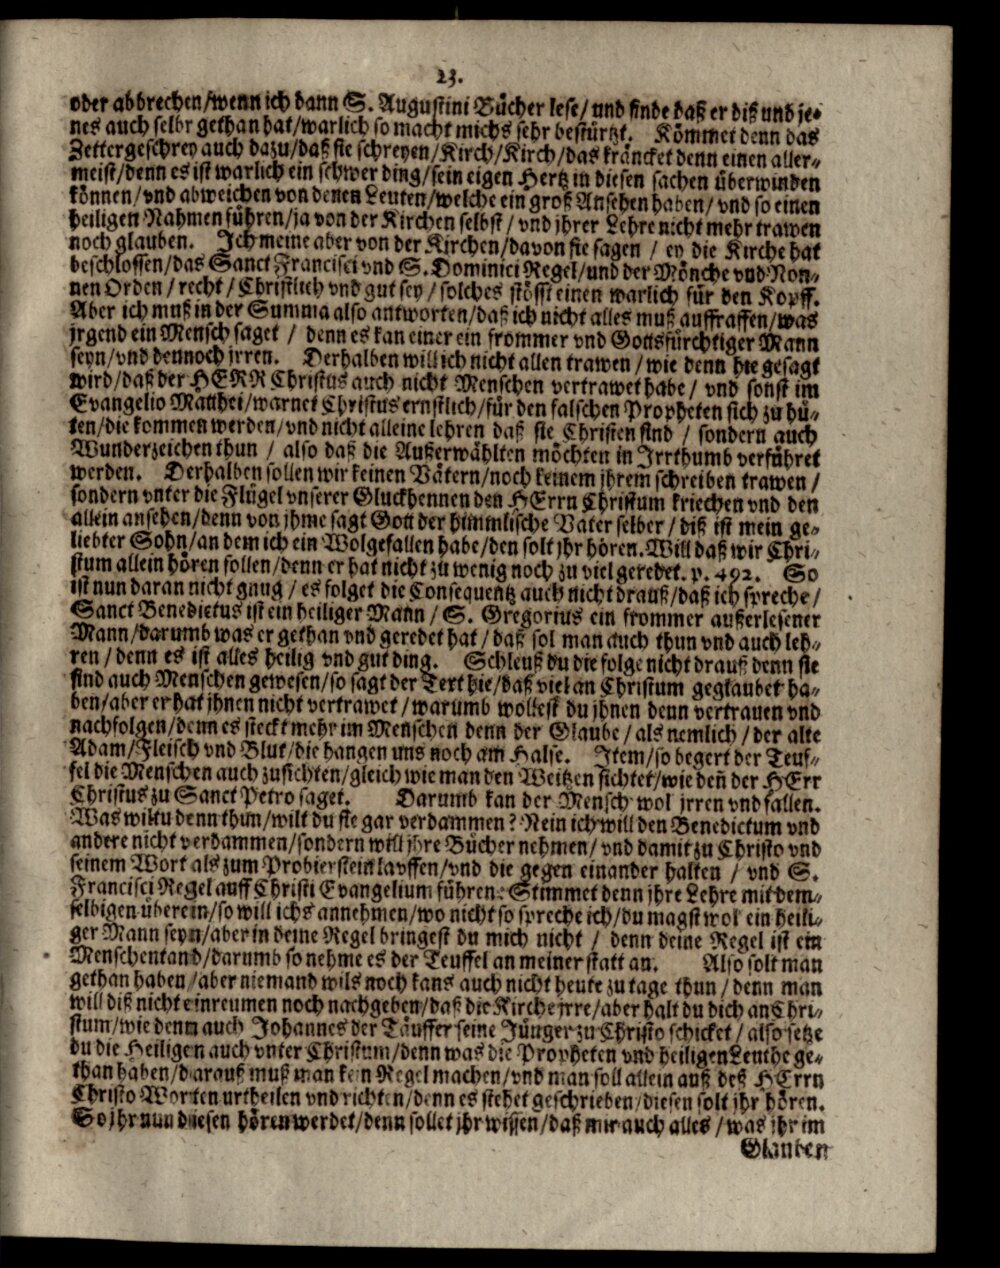 23.
oder abbrechen/wenn ich dann S. Augustini Bücher lese/ und finde daß er diß und je-
nes auch selbr gethan hat/warlich so macht michs sehr bestürtzt. Kömmet denn das
Zettergeschrey auch dazu/daß sie schreyen/Kirch/Kirch/das kräncket denn einen aller-
meist/denn es ist warlich ein schwer ding/sein eigen Hertz in diesen sachen überwinden
können/vnd abweichen von denen Leuten/welche ein groß Ansehen haben/ vnd so einen
heiligen Nahmen führen/ja von der Kirchen selbst / vnd jhrer Lehre nicht mehr trawen
noch glauben. Ich meine aber von der Kirchen/davon sie sagen / ey die Kirche hat
beschlossen/das Sanct Francisci vnd S. Dominici Regel/und der Mönche vnd Non-
nen Orden / recht / Christlich vnd gut sey / solches stösst einen warlich für den Kopff.
Aber ich muß in der Summa also antworten/daß ich nicht alles muß auffraffen/was
jrgend ein Mensch saget / denn es kan einer ein frommer vnd Gottsfürchtiger Mann
seyn/vnd dennoch jrren. Derhalben will ich nicht allen trawen / wie denn hie gesagt
wird/daß der HERR Christus auch nicht Menschen vertrawet habe / vnd sonst im
Evangelio Matthei/warnet Christus ernstlich/für den falschen Propheten sich zu hü-
ten/die kommen werden/vnd nicht alleine lehren daß sie Christen sind / sondern auch
Wunderzeichen thun / also daß die Außerwählten möchten in Irrthumb verführet
werden. Derhalben sollen wir keinen Vätern/noch keinem jhrem schreiben trawen /
sondern vnter die Flügel vnserer Gluckhennen den HErrn Christum kriechen vnd den
allein ansehen/denn von jhme sagt Gott der himmlische Vater selber / diß ist mein ge-
liebter Sohn/an dem ich ein Wolgefallen habe/den solt jhr hören. Will daß wir Chri-
stum allein hören sollen/denn er hat nicht zu wenig noch zu viel geredet. p. 492. So
ist nun daran nicht gnug / es folget die Consequentz auch nicht drauß/daß ich spreche/
Sanct Benedictus ist ein heiliger Mann / S. Gregorius ein frommer außerlesener
Mann/darumb was er gethan vnd geredet hat / daß sol man auch thun vnd auch leh-
ren / denn es ist alles heilig vnd gut ding. Schleuß du die folge nicht drauß denn sie
sind auch Menschen gewesen/so sagt der Text hie/daß viel an Christum geglaubet ha-
ben/aber er hat jhnen nicht vertrawet/ warumb woltest du jhnen denn vertrauen vnd
nachfolgen/denn es steckt mehr im Menschen denn der Glaube / als nemlich / der alte
Adam/Fleisch vnd Blut/die hangen uns noch am Halse. Item/so begert der Teuf-
fel die Menschen auch zusichten/gleich wie man den Weitzen sichtet/wie deñ der HErr
Christus zu Sanct Petro saget. Darumb kan der Mensch wol jrren vnd fallen.
Was wiltu denn thun/wilt du sie gar verdammen? Nein ich will den Benedictum vnd
andere nicht verdammen/sondern will jhre Bücher nehmen / vnd damit zu Christo vnd
seinem Wort als zum Probierstein lauffen/vnd die gegen einander halten / vnd S.
Francisci Regel auff Christi Evangelium führen: Stimmet denn jhre Lehre mit dem-
selbigen überein/so will ichs annehmen/wo nicht so spreche ich/du magst wol ein heili-
ger Mann seyn/aber in deine Regel bringest du mich nicht / denn deine Regel ist ein
Menschentand/darumb so nehme es der Teuffel an meiner statt an. Also solt man
gethan haben/aber niemand wils noch kans auch nicht heute zu tage thun/ denn man
will diß nicht einreumen noch nachgeben/daß die Kirche jrre/aber halt du dich an Chri-
stum/wie denn auch Johannes der Täuffer seine Jünger zu Christo schicket / also setze
du die Heiligen auch vnter Christum/denn was die Propheten vnd heiligen Leuthe ge-
than haben/darauß muß man kein Regel machen/vnd man soll allein auß des HErrn
Christo Worten urtheilen vnd richten/denn es stehet geschrieben/diesen solt jhr hören.
So jhr nun diesen hören werdet/denn sollet jhr wissen/daß mir auch alles / was jhr im
Glauben